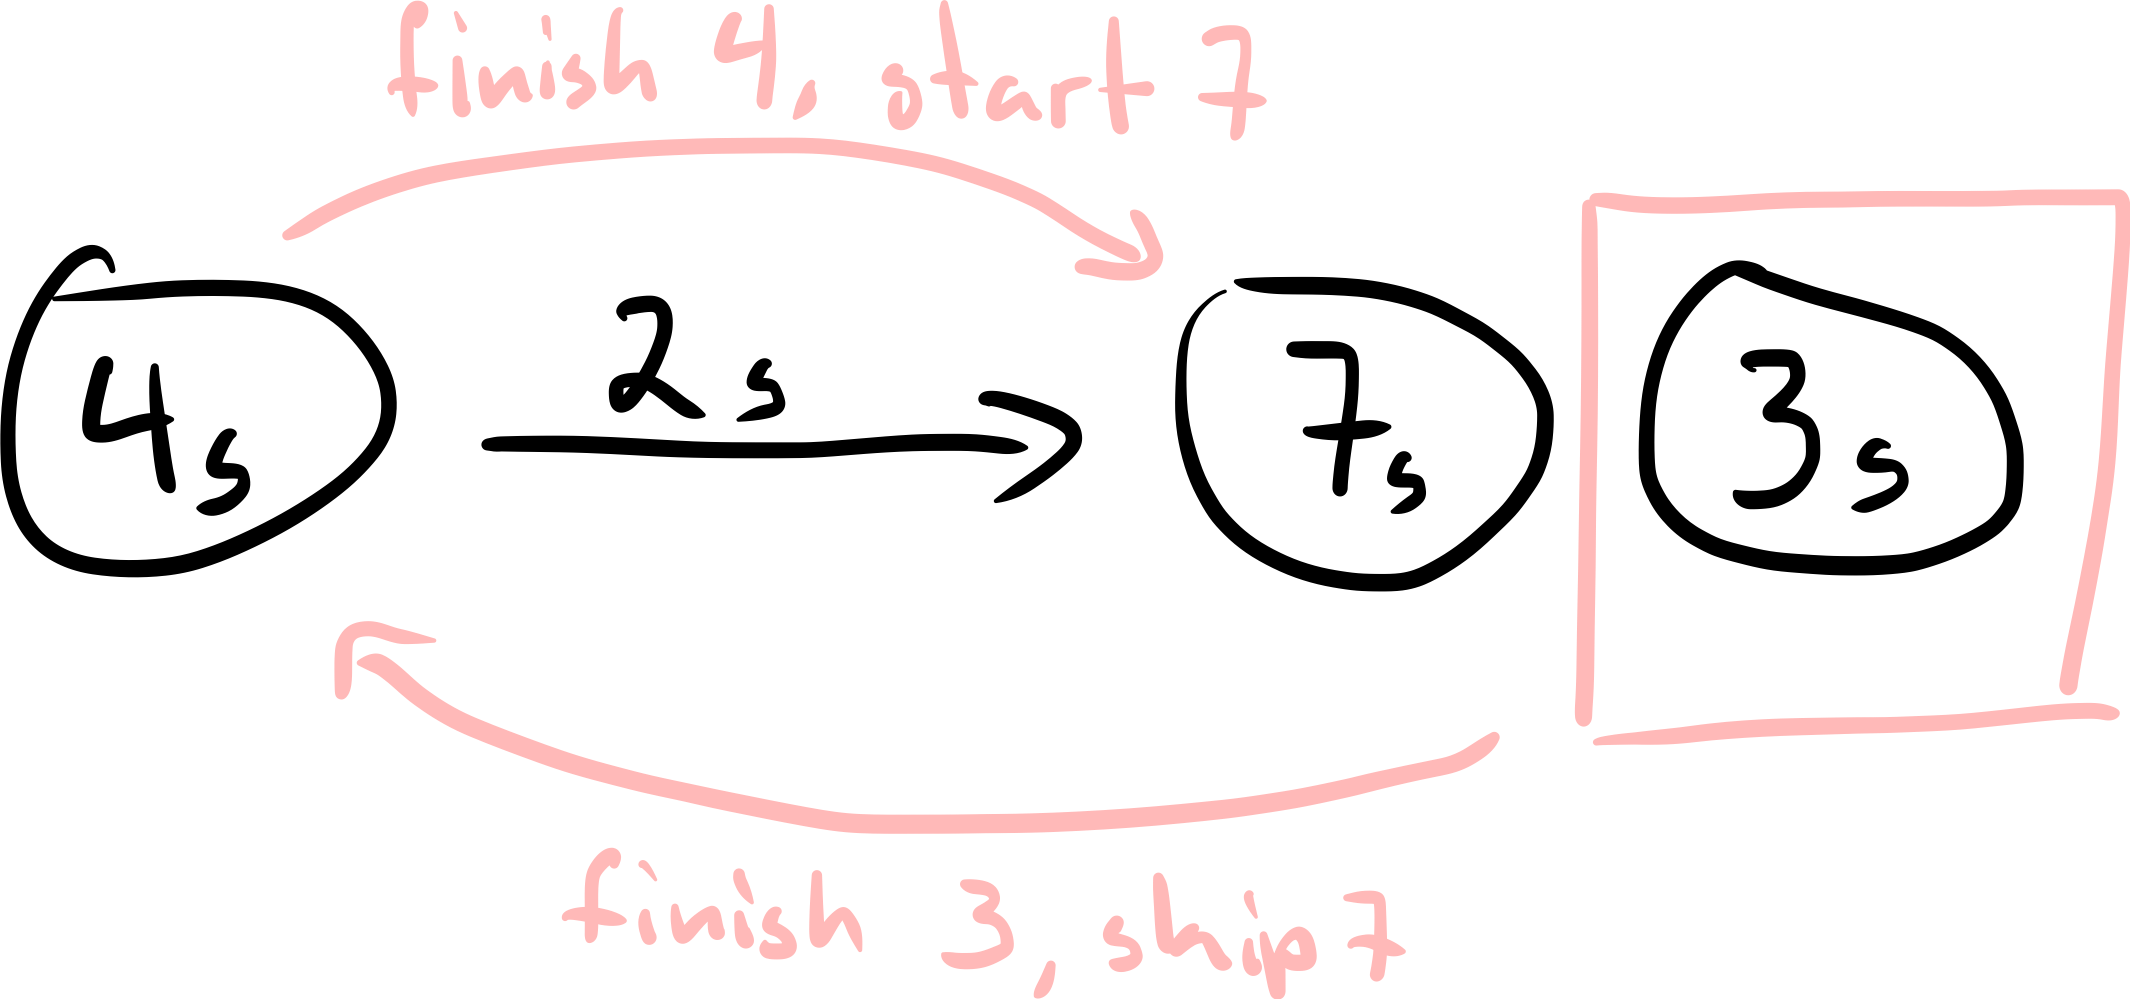 finish 4, start 7
4s
2s
7s
3s
finish 3, skip 7